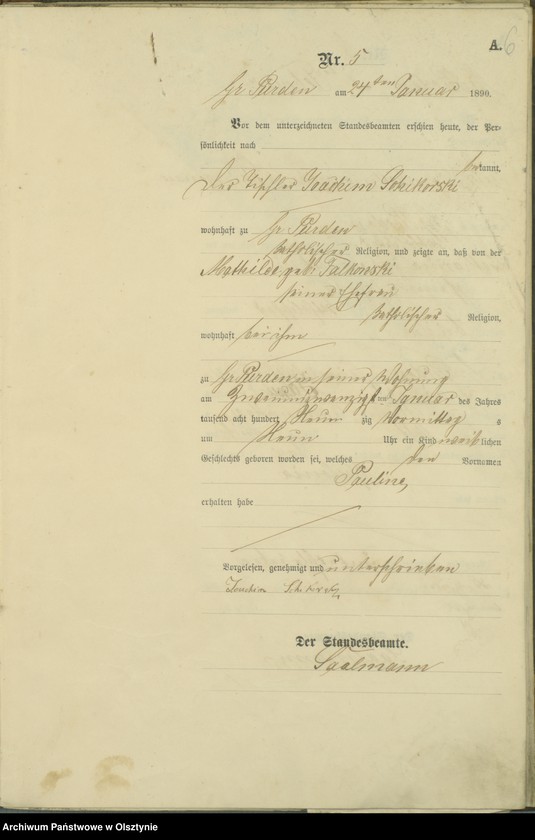 A. 6
Nr. 5
Gr Purden am 24ten Januar 1890.
Vor dem unterzeichneten Standesbeamten erschien heute, der Per-
sönlichkeit nach
bekannt,
Der Tischler Joachim Schikorski
wohnhaft zu Gr Purden
katholischer Religion, und zeigte an, daß von der
Mathilde geb. Falkowski
seiner Ehefrau
katholischer Religion,
wohnhaft bei ihm
zu Gr Purden in seiner Wohnung
am zweiundzwanzigsten Januar des Jahres
tausend acht hundert Neun zig Vormittag s
um Neun Uhr ein Kind weiblichen
Geschlechts geboren worden sei, welches den Vornamen
Pauline,
erhalten habe
Vorgelesen, genehmigt und unterschrieben
Joachim
Der Standesbeamte.
Saalmann
Archiwum Państwowe w Olsztynie